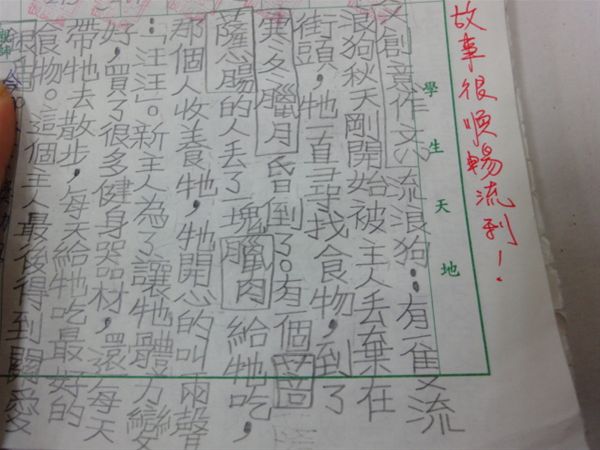 故事很順暢流利!
學生天地
文創意作文:流浪狗:有一隻流
浪狗秋天剛開始被主人丟棄在
街頭,牠一直尋找食物,到了
寒冬臘月昏倒了。有一個菩
薩心腸的人丟了一塊臘肉給牠吃,
那個人收養牠,牠開心的叫兩聲
「汪汪」。新主人為了讓牠體力變
好,買了很多健身器材,還每天
帶牠去散步,每天給牠吃最好的
食物。這個主人最後得到關愛